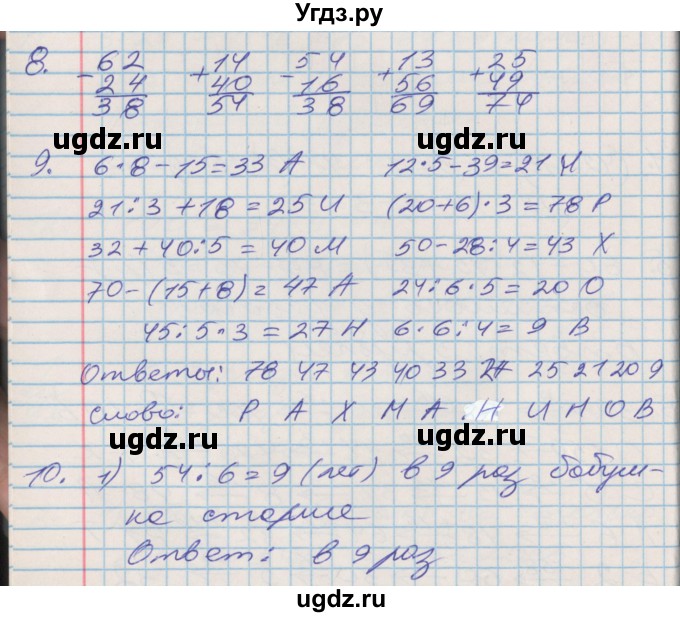 Угдз.ру
8. 62 14 54 13 25
- 24 + 40 - 16 + 56 + 49
38 54 38 69 74
ugdz.ru ugdz.ru
9. 6·8-15=33 А 12·5-39=21 Н
21:3+18=25 И (20+6)·3=78 Р
32+40:5=40 М 50-28:4=43 Х
70-(15+8)=47 А 24:6·5=20 О
45:5·3=27 Н 6·6:4=9 В
Ответы: 78 47 43 40 33 27 25 21 20 9
слово: Р А Х М А Н И Н О В
ugdz.ru ugdz.ru
10. 1) 54:6=9 (лет) в 9 раз бабуш-
ка старше
Ответ: в 9 раз
ugdz.ru ugdz.ru